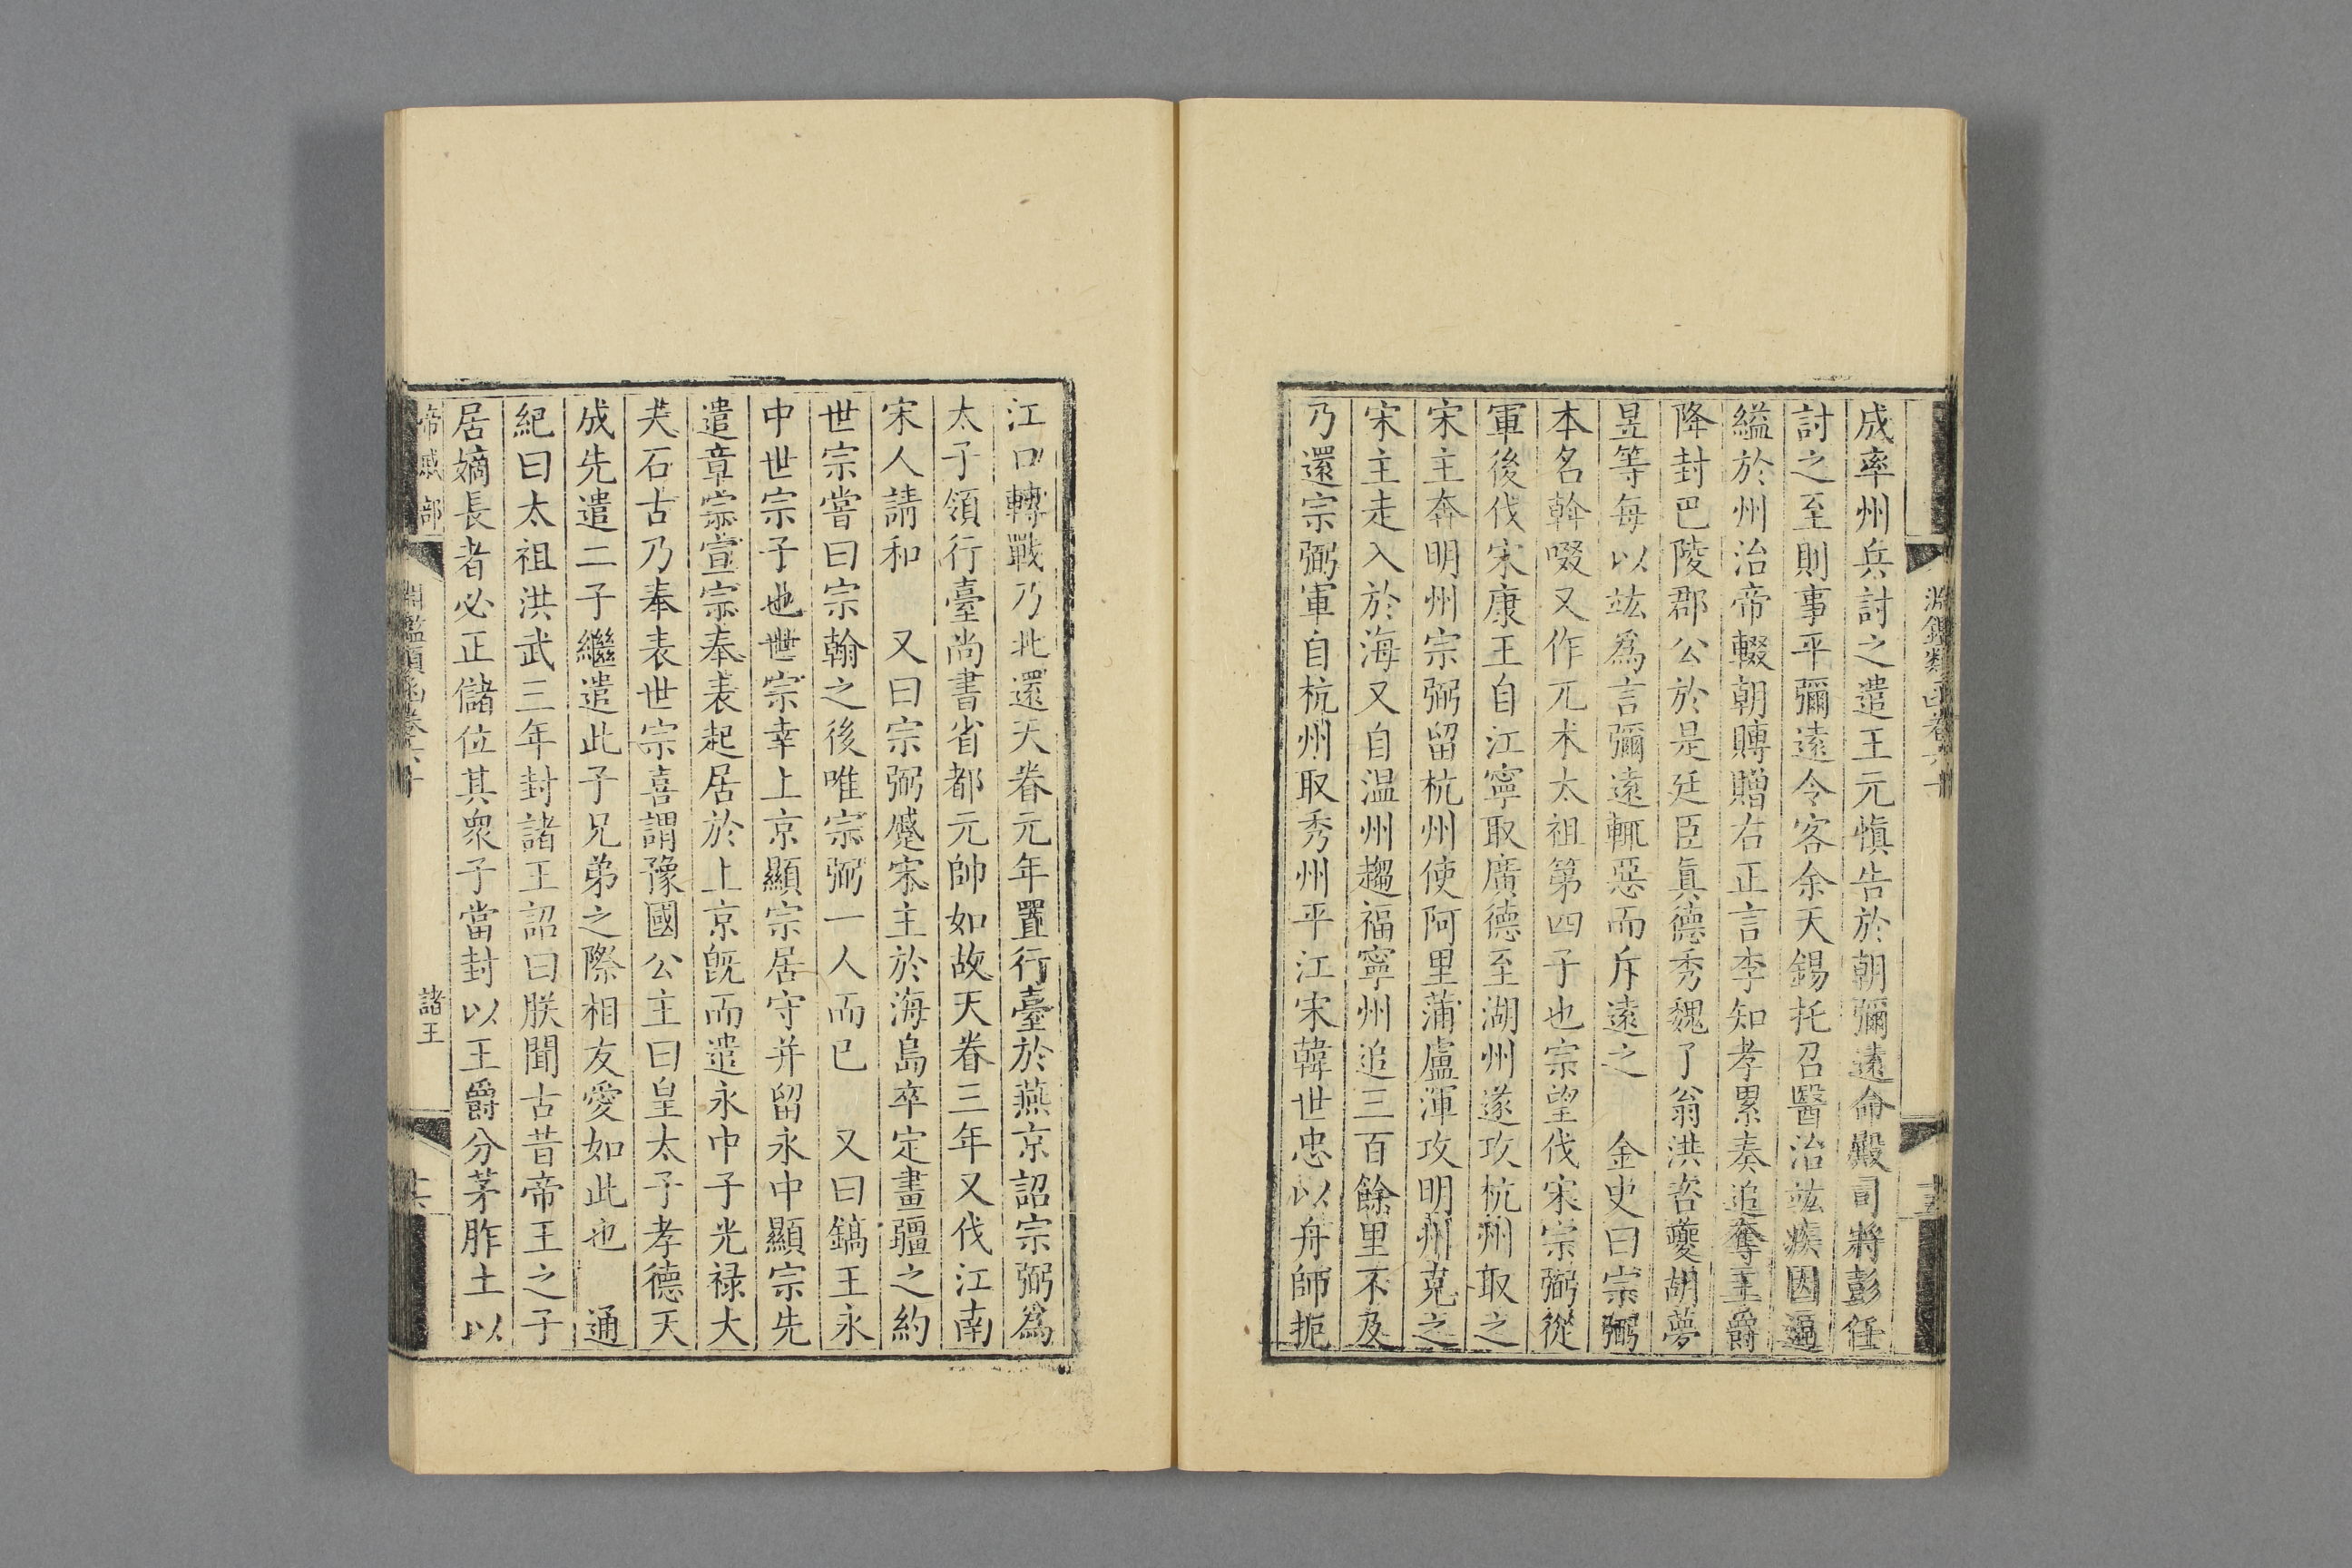 成率州兵討之遣王元慎告於朝彌遠命殿司將彭任
討之至則事平彌遠令客余天錫托召醫治竑疾因逼
縊於州治帝輟朝賻贈右正言李知孝累奏追奪王爵
降封巴陵郡公於是廷臣真德秀魏了翁洪咨夔胡夢
昱等每以竑為言彌遠輒惡而斥遠之　金史曰宗弼
本名斡啜又作兀朮太祖第四子也宗望伐宋宗弼從
軍後伐宋康王自江寧取廣德至湖州遂攻杭州取之
宋主奔明州宗弼留杭州使阿里蒲盧渾攻明州克之
宋主走入於海又自温州趨福寧州追三百餘里不及
乃還宗弼軍自杭州取秀州平江宋韓世忠以舟師扼
江口轉戰乃北還天眷元年置行臺於燕京詔宗弼為
太子領行臺尚書省都元帥如故天眷三年又伐江南
宋人請和　又曰宗弼蹙宋主於海島卒定畫疆之約
世宗嘗曰宗翰之後唯宗弼一人而已　又曰鎬王永
中世宗子也世宗幸上京顯宗居守并留永中顯宗先
遣章宗宣宗奉表起居於上京既而遣永中子光祿大
夫石古乃奉表世宗喜謂豫國公主曰皇太子孝德天
成先遣二子繼遣此子兄弟之際相友愛如此也　通
紀曰太祖洪武三年封諸王詔曰朕聞古昔帝王之子
居嫡長者必正儲位其衆子當封以王爵分茅胙土以
帝戚部
淵鑑類函卷六十
諸王